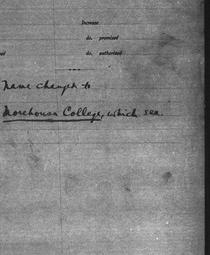 Increase
do. promised
do. authorized
Name changed to
Morehouse College, which see.